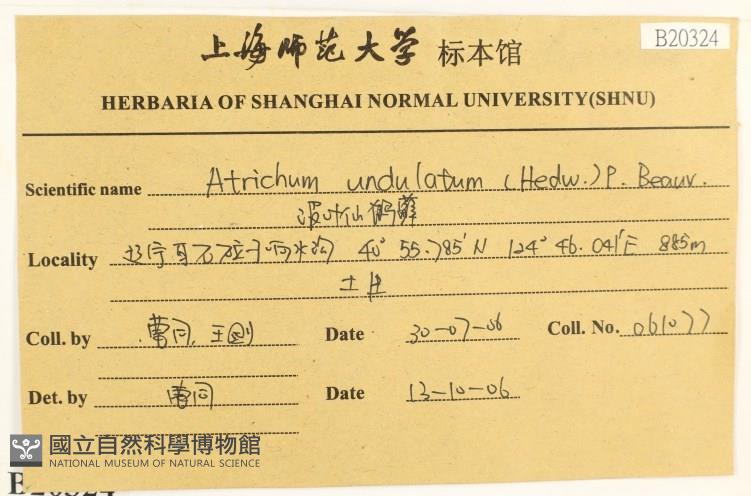 上海师范大学 标本馆
B20324
HERBARIA OF SHANGHAI NORMAL UNIVERSITY(SHNU)
Scientific name Atrichum undulatum (Hedw.) P. Beauv.
波叶仙鹤藓
Locality 辽宁 40° 55.785'N 124° 46.041'E 885m
土
Coll. by 曹同, 王剑 Date 30-07-06 Coll. No. 061077
Det. by 曹同 Date 13-10-06
國立自然科學博物館
NATIONAL MUSEUM OF NATURAL SCIENCE
B20324